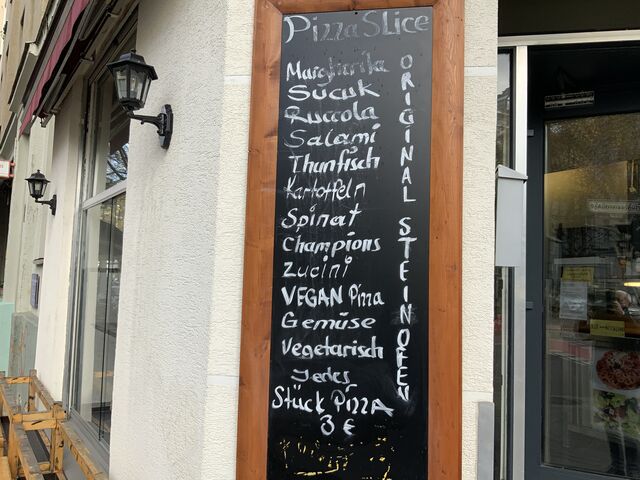 Pizza Slice
Margharita
Sucuk
Ruccola
Salami
Thunfisch
Kartoffeln
Spinat
Champions
Zucini
VEGAN Pizza
Gemüse
Vegetarisch
Jedes
Stück Pizza
3 €
ORIGINAL STEINOFEN